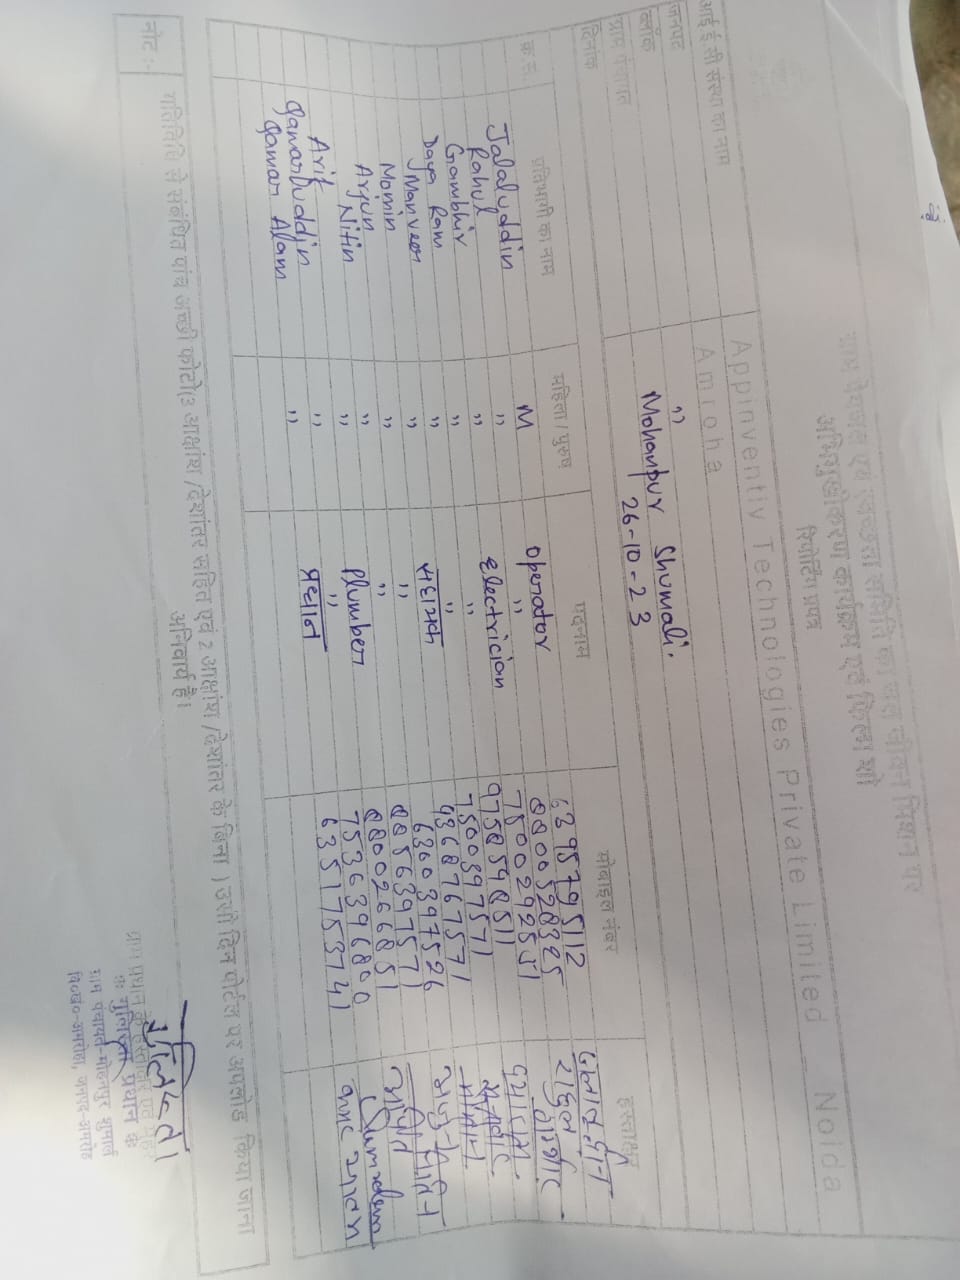 ग्राम पेयजल एवं स्वच्छता समिति का जल जीवन मिशन पर
अभिमुखीकरण कार्यक्रम एवं फिल्म शो
रिपोर्टिंग प्रपत्र
आई ई सी संस्था का नाम Appinventiv Technologies Private Limited Noida
जनपद Amroha
ब्लॉक "
ग्राम पंचायत Mohanpur Shumali.
दिनांक 26-10-23
क्र.स. प्रतिभागी का नाम महिला/पुरुष पदनाम मोबाइल नंबर हस्ताक्षर
Jalaluddin M Operator 6395795112
Rahul " " 88000528325 राहुल
Gambhir " Electrician 7500292551 गम्भीर
Daya Ram " " 9758598511 दयाराम
Manveer " " 7500397571
Momin " सहायक 9368767571 मोमीन
Arjun " " 6360397526 अर्जुन
Nitin " " 8856397571 नितिन
Arif " Plumber 8800266851
Qamarluddin " " 7536396800
Qamar Alam " प्रधान 6351753741
नोट :- गतिविधि से संबंधित पांच अच्छी फोटो(3 आक्षांश/देशांतर सहित एवं 2 आक्षांश/देशांतर के बिना) उसी दिन पोर्टल पर अपलोड किया जाना
अनिवार्य है।
ग्राम प्रधान के हस्ताक्षर एवं मुहर
प्रधान
ग्राम पंचायत-मोहनपुर शुमाली
वि०ख०-अमरोहा, जनपद-अमरोहा